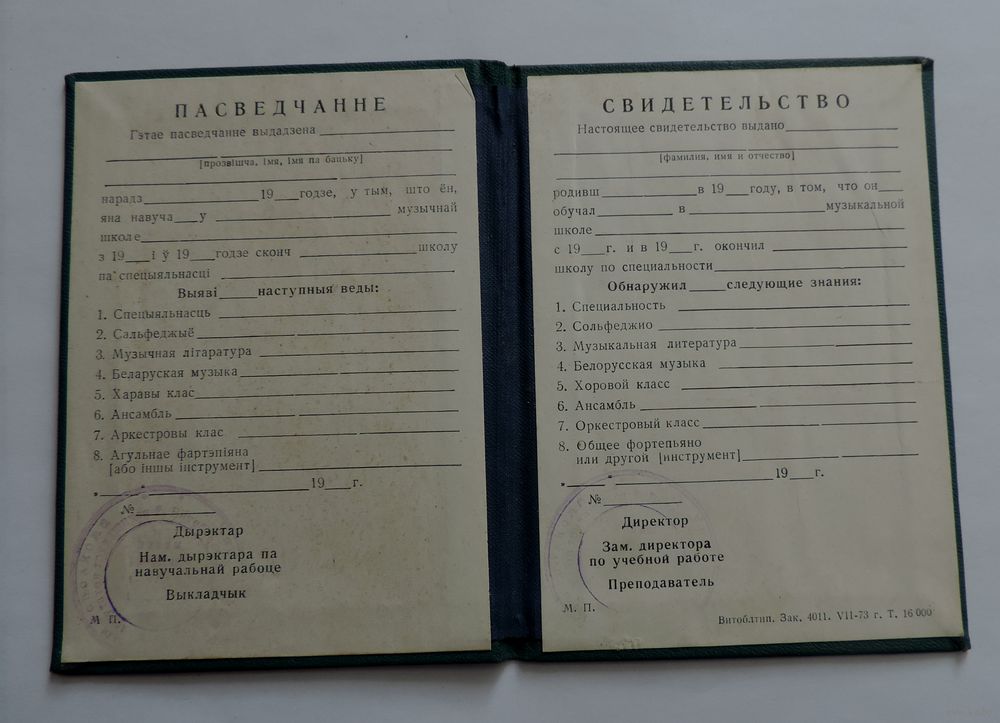 ПАСВЕДЧАННЕ
Гэтае пасведчанне выдадзена
[прозвішча, імя, імя па бацьку]
нарадз 19 годзе, у тым, што ён,
яна навуча у музычнай
школе
з 19 і ў 19 годзе сконч школу
па спецыяльнасці
Выяві наступныя веды:
1. Спецыяльнасць
2. Сальфеджыё
3. Музычная літаратура
4. Беларуская музыка
5. Харавы клас
6. Ансамбль
7. Аркестровы клас
8. Агульнае фартэпіяна
[або іншы інструмент]
„ “ 19 г.
№
Дырэктар
Нам. дырэктара па
навучальнай рабоце
Выкладчык
М. П.
СВИДЕТЕЛЬСТВО
Настоящее свидетельство выдано
[фамилия, имя и отчество]
родивш в 19 году, в том, что он
обучал в музыкальной
школе
с 19 г. и в 19 г. окончил
школу по специальности
Обнаружил следующие знания:
1. Специальность
2. Сольфеджио
3. Музыкальная литература
4. Белорусская музыка
5. Хоровой класс
6. Ансамбль
7. Оркестровый класс
8. Общее фортепьяно
или другой [инструмент]
„ “ 19 г.
№
Директор
Зам. директора
по учебной работе
Преподаватель
М. П.
Витоблтип. Зак. 4011. VII-73 г. Т. 16 000